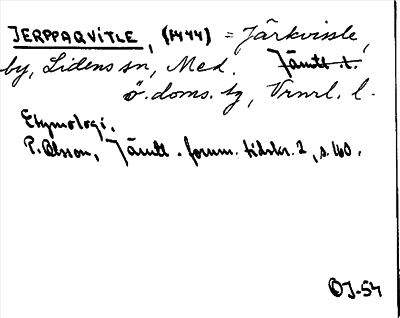 JERPPAQVITLE, (1444) = Järkvissle,
by, Lidens sn, Med. Jämtl. l.
ö. doms. tg, Vrnrl. l.
Etymologi.
P. Olsson, Jämtl. fornm. tidskr. 2, s. 160.
OJ-54